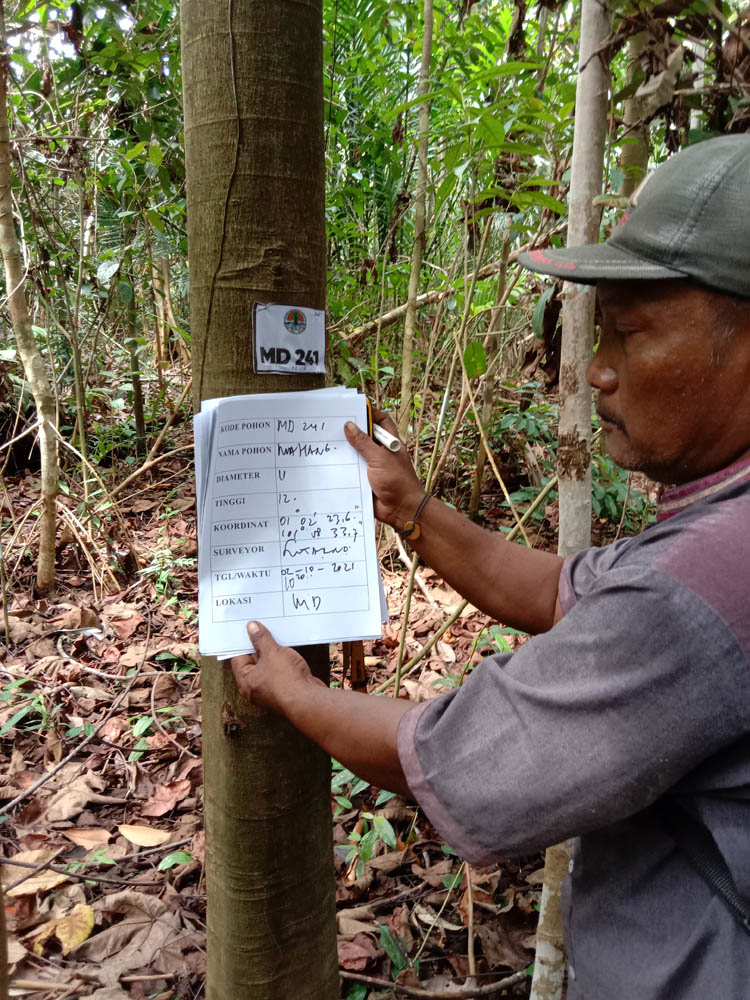 MD 241
KODE POHON MD 241
NAMA POHON MAHANG.
DIAMETER
TINGGI 12.
KOORDINAT 01° 02' 23.6"
101° 08 33.7
SURVEYOR
TGL/WAKTU 02-10-2021
LOKASI MD